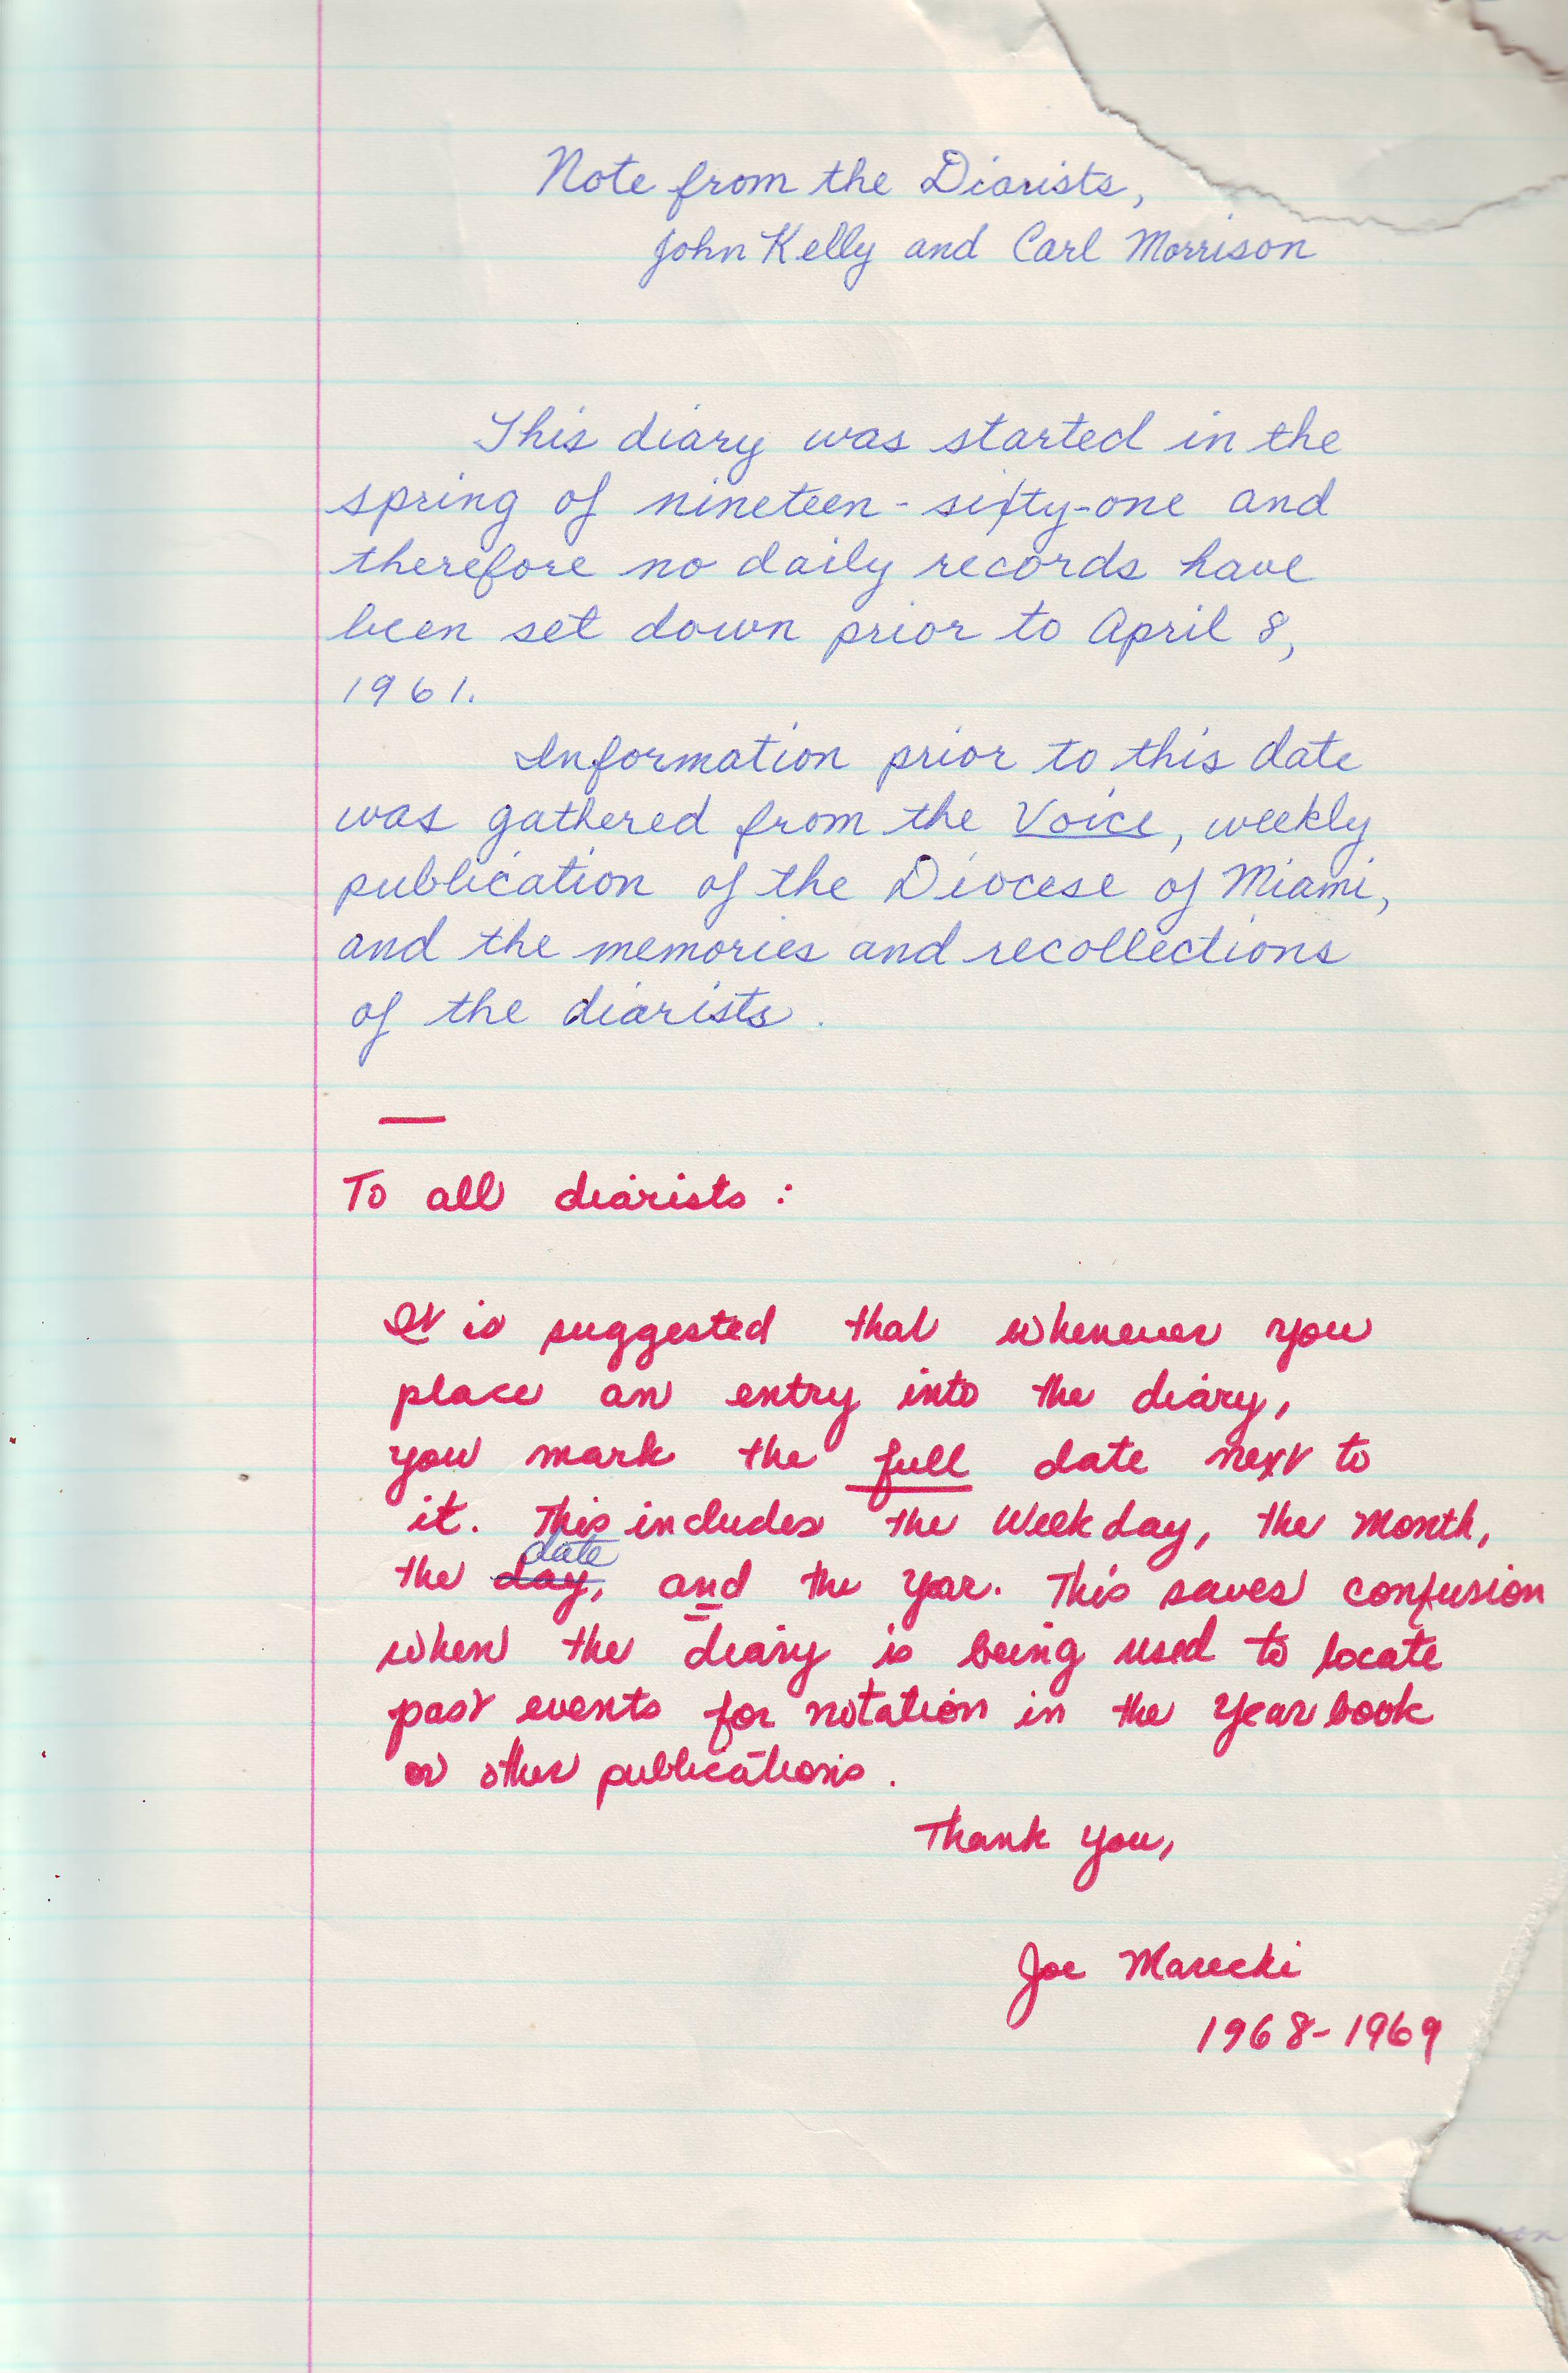 Note from the Diarists,
John Kelly and Carl Morrison
This diary was started in the
spring of nineteen-sixty-one and
therefore no daily records have
been set down prior to April 8,
1961.
Information prior to this date
was gathered from the Voice, weekly
publication of the Diocese of Miami,
and the memories and recollections
of the diarists.
To all diarists:
It is suggested that whenever you
place an entry into the diary,
you mark the full date next to
it. This includes the Weekday, the Month,
date
the day, and the Year. This saves confusion
when the diary is being used to locate
past events for notation in the Yearbook
or other publications.
Thank You,
Joe Marecki
1968-1969